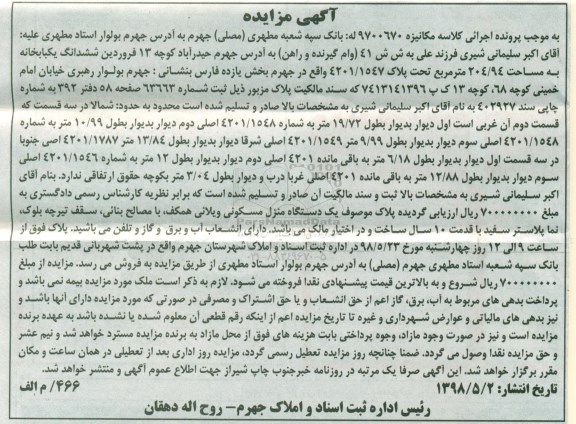 آگهی مزایده
به موجب پرونده اجرائی کلاسه مکانیزه ۹۷۰۰۶۷۰ له: بانک سپه شعبه مطهری (مصلی) جهرم به آدرس جهرم بولوار استاد مطهری علیه:
آقای اکبر سلیمانی شیری فرزند علی به ش ش ۴۱ (وام گیرنده و راهن) به آدرس جهرم حیدرآباد کوچه ۱۳ فروردین ششدانگ یکبابخانه
به مساحت ۲۰۴/۹۴ مترمربع تحت پلاک ۴۲۰۱/۱۵۴۷ واقع در جهرم بخش یازده فارس بنشانی : جهرم بولوار رهبری خیابان امام
خمینی کوچه ۶۸، کوچه ۱۳ ک پ ۷۴۱۳۱۴۱۳۹۶ که سند مالکیت پلاک مزبور ذیل ثبت شماره ۶۳۶۶۳ صفحه ۵۸ دفتر ۳۹۲ به شماره
چاپی سند ۴۰۲۹۲۷ به نام آقای اکبر سلیمانی شیری به مشخصات بالا صادر و تسلیم شده است محدود به حدود: شمالا در سه قسمت که
قسمت دوم آن غربی است اول دیوار بدیوار بطول ۱۹/۷۲ متر به شماره ۴۲۰۱/۱۵۴۸ اصلی دوم دیوار بدیوار بطول ۱۰/۹۹ متر به شماره
۴۲۰۱/۱۵۴۸ اصلی سوم دیوار بدیوار بطول ۹/۹۹ متر ۴۲۰۱/۱۵۴۹ اصلی شرقا دیوار بدیوار بطول ۱۳/۸۴ متر ۴۲۰۱/۱۷۸۷ اصی جنوبا
در سه قسمت اول دیوار بدیوار بطول ۶/۱۸ متر به باقی مانده ۴۲۰۱ اصلی دوم دیوار بدیوار بطول ۱۲ متر به شماره ۴۲۰۱/۱۵۴۶ اصلی
سوم دیوار بدیوار بطول ۱۲/۸۸ متر به باقی مانده ۴۲۰۱ اصلی غربا درب و دیوار بطول ۳/۰۴ متر بکوچه حقوق ارتفاقی ندارد. بنام آقای
اکبر سلیمانی شیری به مشخصات بالا ثبت و سند مالکیت آن صادر و تسلیم شده است که برابر نظریه کارشناس رسمی دادگستری به
مبلغ ۷۰۰۰۰۰۰۰۰ ریال ارزیابی گردیده پلاک موصوف یک دستگاه منزل مسکونی ویلائی همکف، با مصالح بنائی، سقف تیرچه بلوک،
نما پلاستر سفید با قدمت ۱۰ سال ساخت و در اختیار مالک می باشد. دارای انشعاب آب و برق و گاز و تلفن می باشید. پلاک فوق از
ساعت ۹ الی ۱۲ روز چهارشنبه مورخ ۹۸/۵/۲۳ در اداره ثبت اسناد و املاک شهرستان جهرم واقع در پشت شهربانی قدیم بابت طلب
بانک سپه شعبه استاد مطهری جهرم (مصلی) به آدرس جهرم بولوار استاد مطهری از طریق مزایده به فروش می رسد. مزایده از مبلغ
۷۰۰۰۰۰۰۰۰ ریال شروع و به بالاترین قیمت پیشنهادی نقدا فروخته می شود. لازم به ذکر است ملک مورد مزایده بیمه نمی باشد و
پرداخت بدهی های مربوط به آب، برق، گاز اعم از حق انشعاب و یا حق اشتراک و مصرفی در صورتی که مورد مزایده دارای آنها باشد و
نیز بدهی های مالیاتی و عوارض شهرداری و غیره تا تاریخ مزایده اعم از اینکه رقم قطعی آن معلوم شده یا نشده باشد به عهده برنده
مزایده است و نیز در صورت وجود مازاد، وجوه پرداختی بابت هزینه های فوق از محل مازاد به برنده مزایده مسترد خواهد شد و نیم عشر
و حق مزایده نقدا وصول می گردد. ضمنا چنانچه روز مزایده تعطیل رسمی گردد، مزایده روز اداری بعد از تعطیلی در همان ساعت و مکان
مقرر برگزار خواهد شد. این آگهی صرفا یک مرتبه در روزنامه خبرجنوب چاپ شیراز جهت اطلاع عموم آگهی و منتشر خواهد شد.
تاریخ انتشار: ۱۳۹۸/۵/۲ ۴۶۶/ م الف
رئیس اداره ثبت اسناد و املاک جهرم- روح اله دهقان